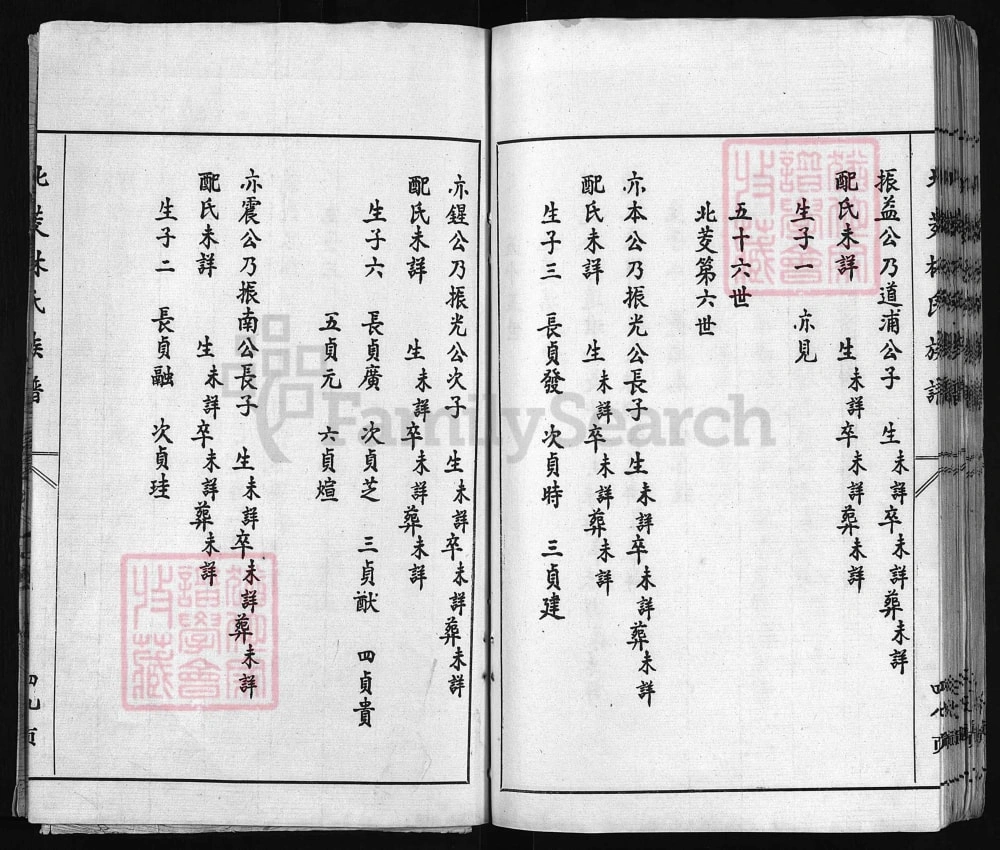 振益公乃道浦公子 生未詳卒未詳葬未詳
配氏未詳 生未詳卒未詳葬未詳
生子一 亦見
五十六世
北茭第六世
亦本公乃振光公長子 生未詳卒未詳葬未詳
配氏未詳 生未詳卒未詳葬未詳
生子三 長貞發 次貞時 三貞建
亦鍟公乃振光公次子 生未詳卒未詳葬未詳
配氏未詳 生未詳卒未詳葬未詳
生子六 長貞廣 次貞芝 三貞猷 四貞貴
五貞元 六貞煊
亦震公乃振南公長子 生未詳卒未詳葬未詳
配氏未詳 生未詳卒未詳葬未詳
生子二 長貞融 次貞珪
北茭林氏族譜
四九頁
FamilySearch
譜學會